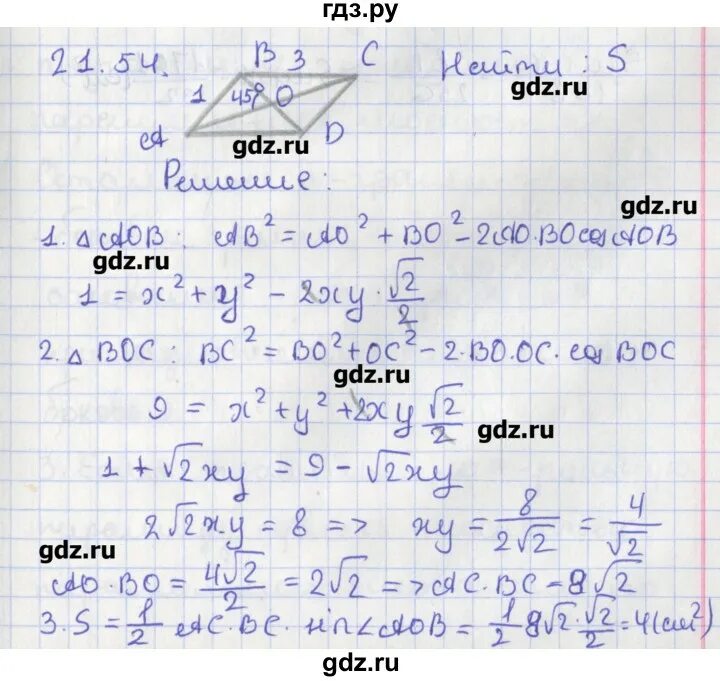 гдз.ру
21.54. B 3 C Найти: S
gdz.ru
1 45° O
A D
gdz.ru
Решение:
gdz.ru
1. △ AOB: AB² = AO² + BO² - 2AO·BO cos AOB
gdz.ru
1 = x² + y² - 2xy · √2/2
2. △ BOC: BC² = BO² + OC² - 2·BO·OC·cos BOC
gdz.ru
9 = x² + y² + 2xy √2/2
gdz.ru
1 + √2xy = 9 - √2xy
2√2xy = 8 => xy = 8/2√2 = 4/√2
gdz.ru
AO·BO = 4√2/2 = 2√2 => AC·BC = 8√2
3. S = 1/2 AC·BC·sin∠AOB = 1/2 8√2·√2/2 = 4(см²)
gdz.ru